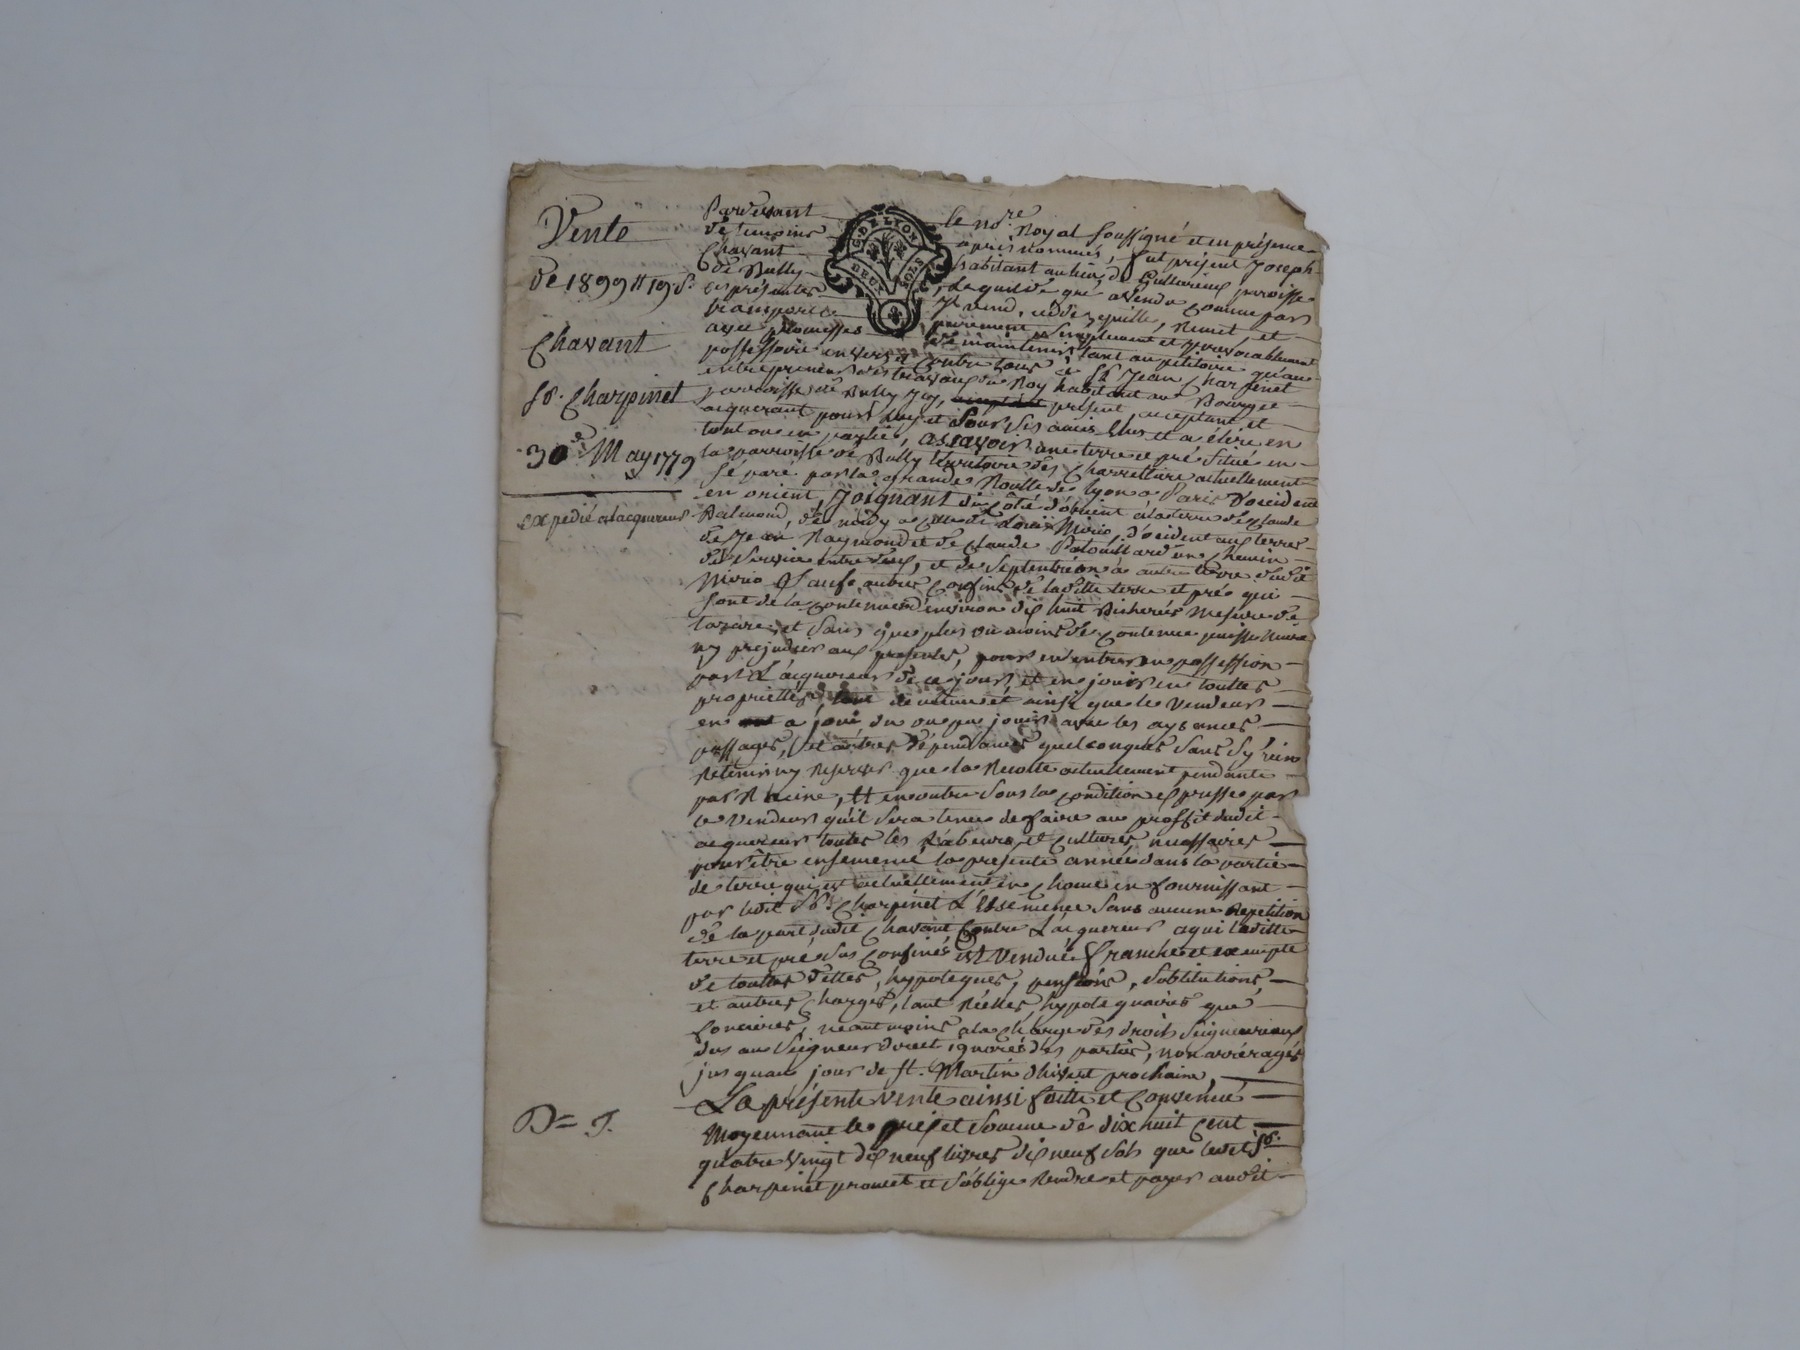 Vente
de 1899 ₶ 19 s.
Chavant
Sr. Charpinet
30e May 1779
expedié a lacquereur
Pardevant le nore Royal soussigné et en présence
de temoins après nommés, fut présent Joseph
Chavant habitant au lieu de paroisse
de Bully, Lequel de gré a vendu comme par
ces présentes Il vend, cedde, quitte, remet et
transporte purement simplement et irrevocablement
avec promesses de maintenir tant au petitoire qu'au
possessoire envers et contre tous a Sr Jean Charpinet
entrepreneur des travaux du Roy habitant au Bourg et
parroisse de Bully icy, present acceptant et
acquerant pour luy et pour ses amis elus et a élire en
tout ou en partie, ascavoir une terre et pré situé en
la parroisse de Bully territoire des Charrettiere actuellement
séparé par la grande Routte de Lyon a Paris d'occident
en orient, Joignant du coté d'orient a la terre de Claude
Dalmand, de midy a celle de Louis Mirio, d'occident aux terres
de Jean Raymond et de Claude Patouillard un chemin
de service entre deux, et de septentrion a autre terre dudit
Mirio sauf autres confins de laditte terre et pré qui
sont de la contenue d'environ dix huit Bicherées mesure de
tarare, et sans que plus ou moins de contenue puisse nuire
ny prejudicier aux presentes, pour en entrer en possession
par L'acquereur de ce jour, et en jouir en touttes
proprietté, de même et ainsi que le vendeur
en a joui du ou pu jouir avec les aysances
passages, et autres dépendances quelconques sans s'y rien
retenir ny reserver que la Recolte actuellement pendante
par Racine, et en outre sous la condition expresse par
le vendeur quil sera tenu de faire au proffit dudit
acquereur toutes les Labeurs et cultures necessaires
pour être ensemencé la presente année dans la partie
de terre qui est actuellement en chaume en fournissant
par ledit Sr. Charpinet L'essemence sans aucune repetition
de la part dudit Chavant contre L'acquereur a qui laditte
terre et pré sus confinés est venduë franche et exempte
de touttes dettes, hypoteques, pensions, substitutions,
et autres charges, tant Réelles, hypotequaires que
foncieres, neantmoins a la charge des droits seigneuriaux
dus au seigneur direct ignorés des parties, non arréragés
jusquau jour de st. Martin dhivert prochain,
La présente vente ainsi faitte et convenuë
Moyennant le prix et somme de dix huit cent
quatre vingt dix neuf livres dix neuf sols que ledit Sr.
Charpinet promet et s'oblige rendre et payer audit
G. DE LYON
DEUX SOLS